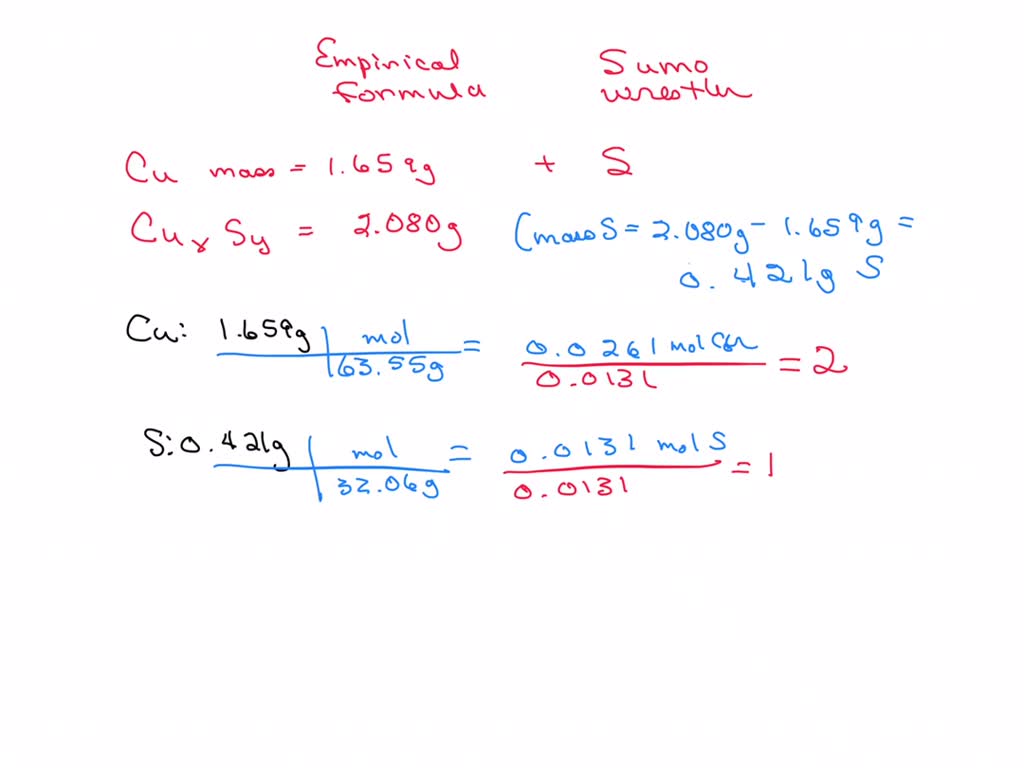 Empirical formula
Sumo wrestler
Cu mass = 1.659g + S
CuxSy = 2.080g (mass S = 2.080g - 1.659g =
0.421g S
Cu: 1.659g | mol = 0.0261 mol Cu = 2
63.55g 0.0131
S: 0.421g | mol = 0.0131 mol S = 1
32.06g 0.0131